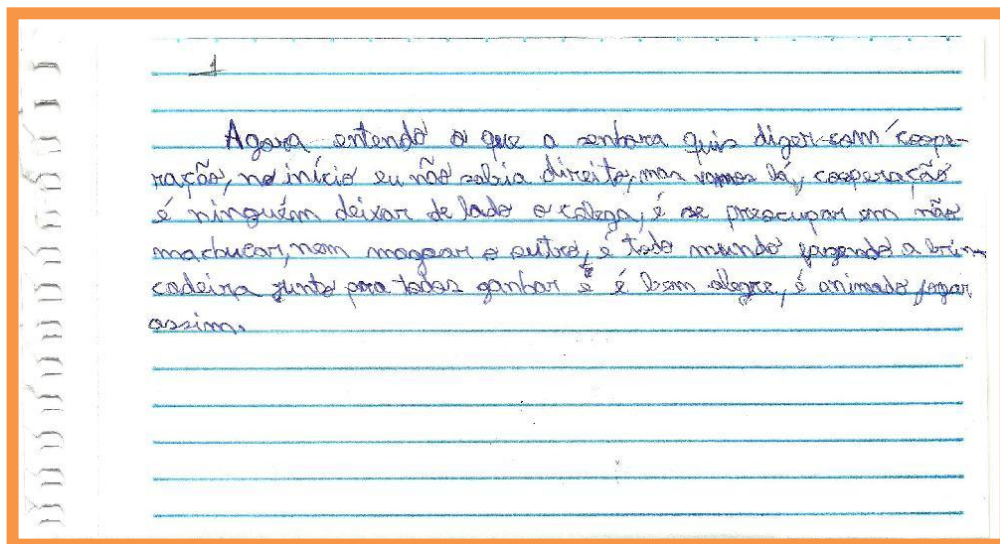 1
Agora entendo o que a senhora quis dizer com coope-
ração, no início eu não sabia direito, mas vamos lá, cooperação
é ninguém deixar de lado o colega, é se preocupar em não
machucar, nem magoar o outro, é todo mundo fazendo a brin-
cadeira junto para todos ganhar e é bem alegre, é animado jogar
assim.